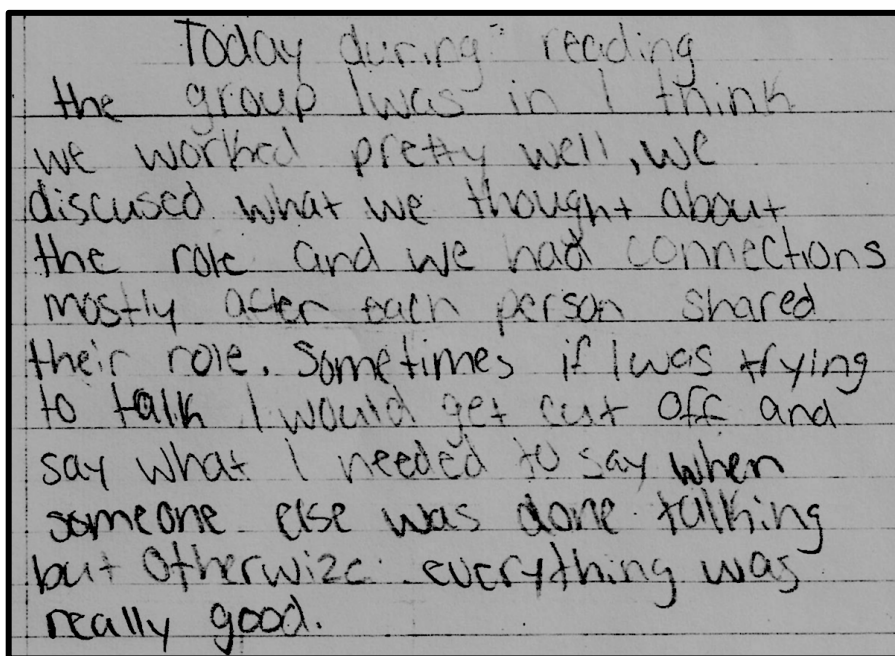 Today during reading
the group I was in I think
we worked pretty well, we
discused what we thought about
the role and we had connections
mostly after each person shared
their role. Sometimes if I was trying
to talk I would get cut off and
say what I needed to say when
someone else was done talking
but otherwize everything was
really good.